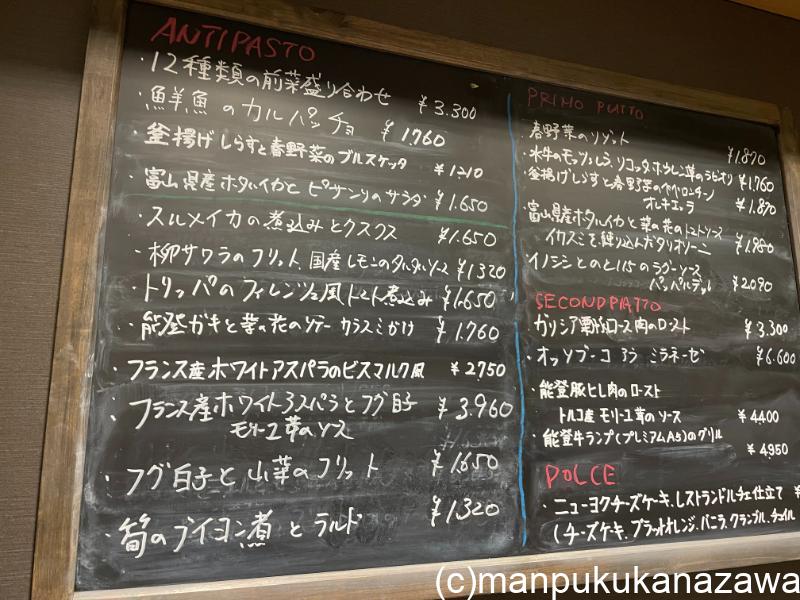 ANTIPASTO
・12種類の前菜盛り合わせ ¥3.300
・鮮魚のカルパッチョ ¥1.760
・釜揚げしらすと春野菜のブルスケッタ ¥1210
・富山県産ホタルイカとピサンリのサラダ ¥1.650
・スルメイカの煮込みとクスクス ¥1.650
・柳サワラのフリット、国産レモンのタルタルソース ¥1320
・トリッパのフィレンツェ風トマト煮込み ¥1.650
・能登ガキと菜の花のソテー カラスミがけ ¥1.760
・フランス産ホワイトアスパラのビスマルク風 ¥2750
・フランス産ホワイトアスパラとフグ白子
モリーユ茸のソース ¥3.960
・フグ白子と山菜のフリット ¥1.650
・筍のブイヨン煮とラルド ¥1320
PRIMO PIATTO
・春野菜のリゾット ¥1.870
・水牛のモッツァレラ、リコッタ、ホウレン草のラビオリ ¥1.760
・釜揚げしらすと春野菜のペペロンチーノ
オレキエッテ ¥1.870
・富山県産ホタルイカと菜の花のトマトソース
イカスミを練り込んだタリオリーニ ¥1.980
・イノシシとのと115のラグーソース
パッパルデッレ ¥2.090
SECONDPIATTO
・ガリシア栗豚ロース肉のロースト ¥3.300
・オッソブーコ アラ ミラネーゼ ¥6.600
・能登豚ヒレ肉のロースト
トルコ産 モリーユ茸のソース ¥4400
・能登牛ランプ(プレミアムA5)のグリル
¥4950
DOLCE
・ニューヨクチーズケーキ、レストランドルチェ仕立て ¥
(チーズケーキ、ブラッドオレンジ、バニラ、クランブル、チュイル
(c)manpukukanazawa